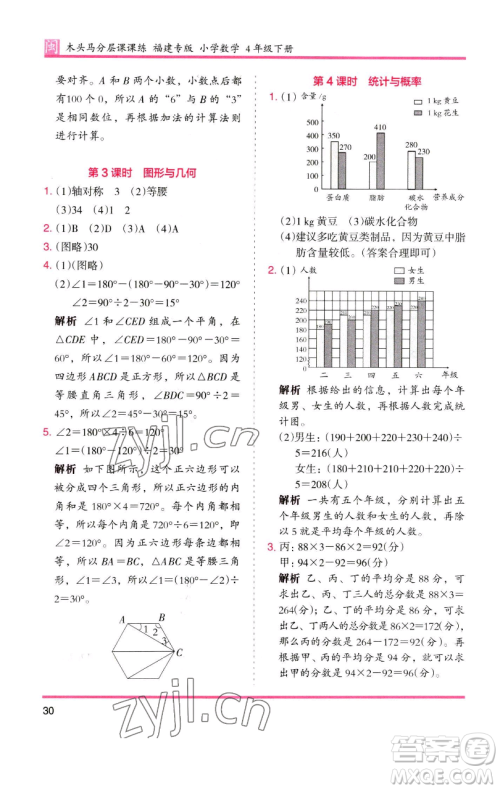 闽 木头马分层课课练 福建专版 小学数学 4年级下册
要对齐。A 和 B 中,小数点后面都
没有 0,所以 A 的“6”与 B 的“3”
是相同数位,再根据加法的计算法则
进行计算。
第 3 课时 图形与几何
1. (1)轴对称 3 (2)等腰
(3)34 (4)1 2
2. (1)B (2)D (3)A (4)B
3. (1)(图略)30
4. (1)(图略)
(2)∠1=180°-(180°-90°-30°)=120°
∠2=90°÷2-30°=15°
解析 ∠1 和∠CED 组成平角,在
△CDE 中,∠CED=180°-90°-30°=
60°,所以∠1=180°-60°=120°。因为
四边形 ABCD 是正方形,△BDC 是
等腰直角三角形,所以∠BDC=90°÷2=
45°。
5. ∠2=180°×4÷6=120°
∠1=(180°-120°)÷2=30°
解析 如下图所示,这个正六边形可以
被分成四个三角形,其内角和为
180°×4=720°,所以∠2=720°÷6=
120°。因为正六边形每条边都相
等,所以 BA=BC,△ABC 是等腰三
角形,所以∠1=(180°-120°)÷2=
30°。
A B
1 2
3
C
第 4 课时 统计与概率
1. (1) 含量/g
1 kg 黄豆
1 kg 花生
500
400
300
200
100
0
350 270 200 410 280 230
蛋白质 脂肪 碳水化合物 营养成分
(2)1 kg 黄豆 (3)碳水化合物
(4)建议多吃黄豆,因为黄豆中脂
肪含量较低。(答案合理即可)
2. (1) 人数
女生
男生
240
230
220
210
200
190
180
160
0
二 三 四 五 六 年级
解析 根据给出的信息,计算出每个
年级男、女生的人数,再根据人数完成统
计图。
(2)男生:(190+200+220+230+240)÷
5=216(人)
女生:(180+200+210+220+230)÷
5=208(人)
解析 一共有五个年级,分别计算出五
个年级男生的人数和女生的人数,再除
以 5 就是平均人数。
3. 丙:88×3-86×2=92(分)
甲:94×2-92=96(分)
解析 乙、丙、丁的平均分是 88 分,可
以求出乙、丙、丁三人的总分数是 88×3=
264(分);乙、丁的平均分是 86 分,可以求
出乙、丁两人的总分数是 86×2=172(分),
那么丙的分数是 264-172=92(分)。再
根据甲、丙的平均分是 94 分,可以求出
甲的分数是 94×2-92=96(分)。
30
zyjl.cn
zyjl.cn
答案圈
MXQE.COM